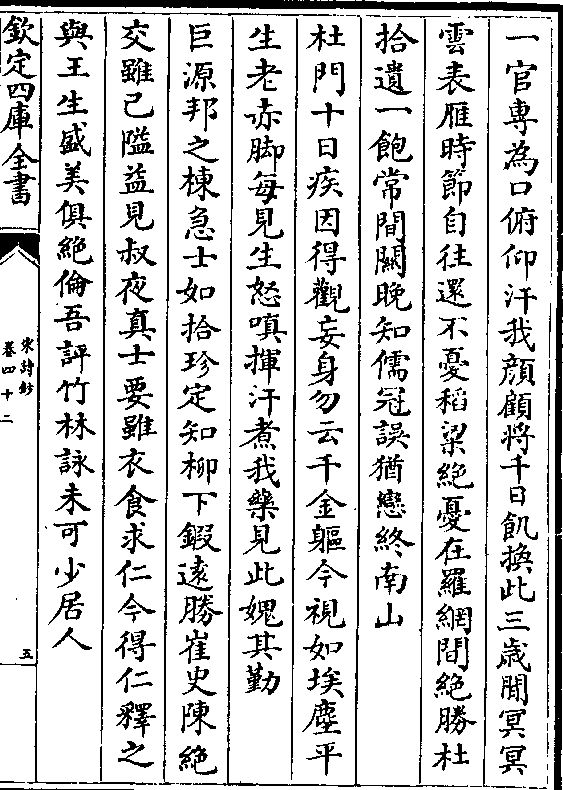 一官專為口俯仰汗我顔顧將千日飢換此三歳閒冥冥
雲表雁時節自往還不憂稻粱絶憂在羅網間絶勝杜
拾遺一飽常間關晚知儒冠誤猶戀終南山
杜門十日疾因得觀妄身勿云千金軀今視如埃塵平
生老赤脚每見生怒嗔揮汗煮我藥見此媿其勤
巨源邦之棟急士如拾珍定知柳下鍛遠勝崔史陳絶
交雖已隘益見叔夜真士要雖衣食求仁今得仁釋之
與王生盛美俱絶倫吾評竹林詠未可少居人
欽定四庫全書
宋詩鈔
卷四十二
五